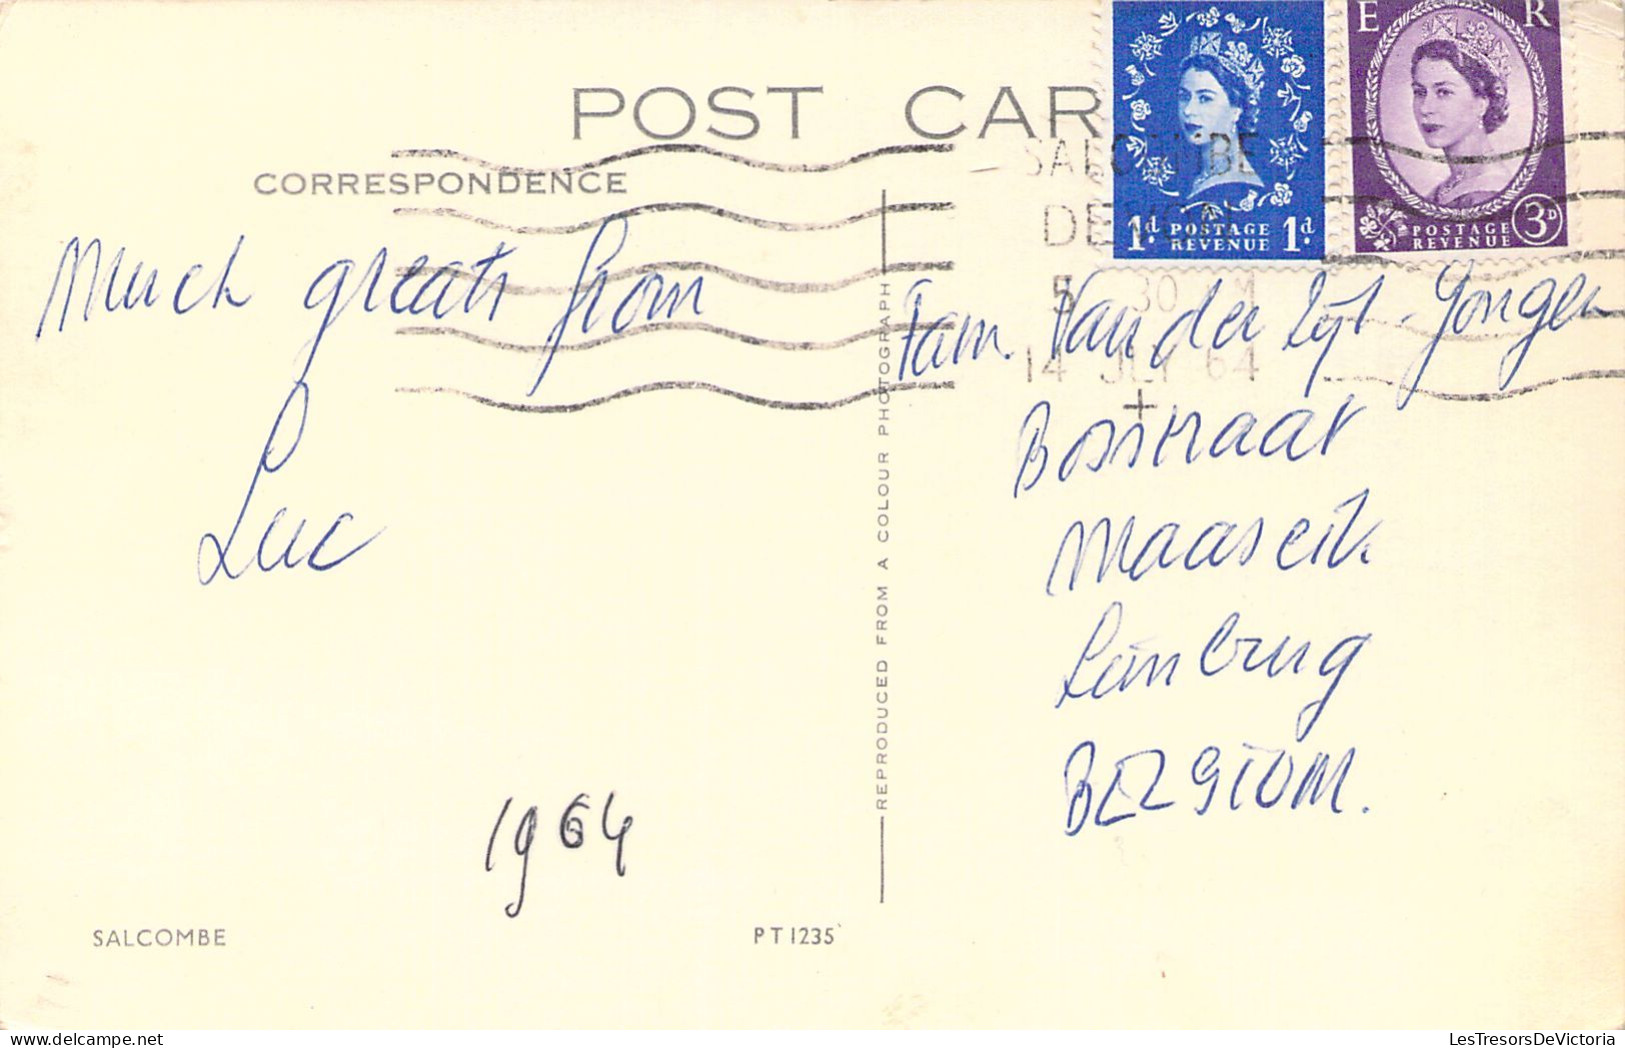 POST CAR
CORRESPONDENCE
SALCOMBE
DEVON
5 30 PM
14 JLY 64
1d. POSTAGE REVENUE 1d.
E R
POSTAGE REVENUE 3D
Much greats from
Luc
1964
Fam. Van der Eyt-Jongen
Bosstraat
Maaseik
Limburg
BELGIUM.
REPRODUCED FROM A COLOUR PHOTOGRAPH
SALCOMBE
PT1235
LesTresorsDeVictoria